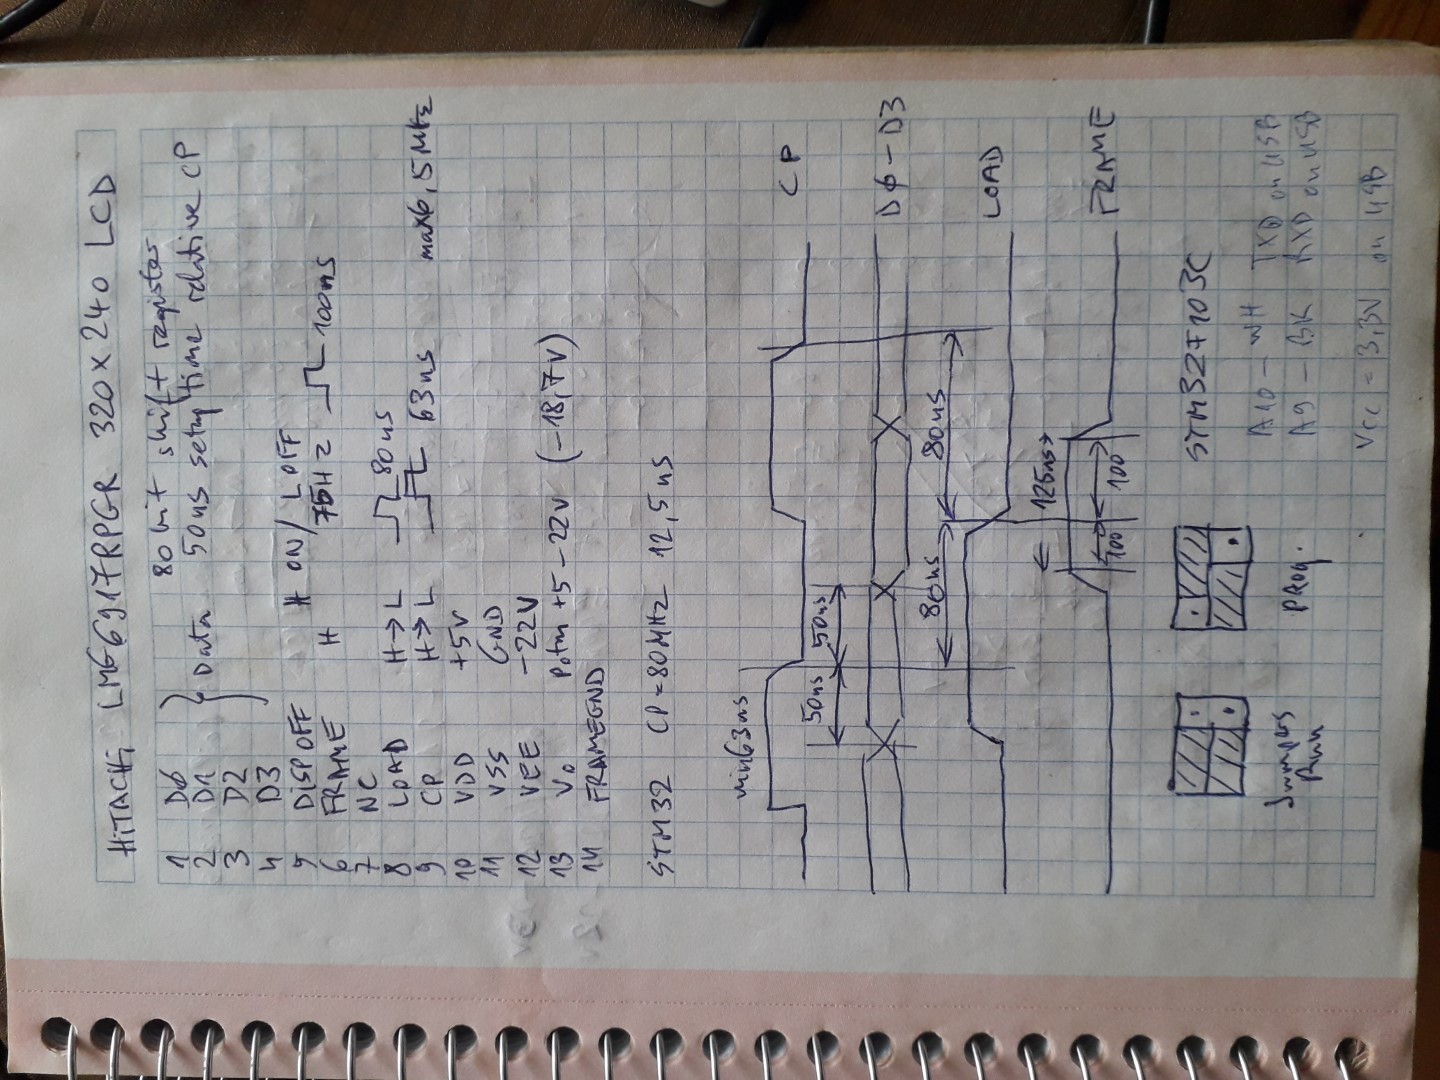 HITACHI LMG6917RPGR 320x240 LCD
1 D0 80 bit shift register
2 D1 Data 50ns setup time relative CP
3 D2
4 D3
5 DISPOFF H ON/L OFF
6 FRAME H 75Hz 100ns
7 NC
8 LOAD H→L 80ns
9 CP H→L 63ns max 6,5MHz
10 VDD +5V
11 VSS GND
12 VEE -22V
13 Vo Potm +5 -22V (-18,7V)
14 FRAMEGND
STM32 CP=80MHz 12,5ns
min63ns CP
50ns 50ns
D0-D3
80ns 80ns
LOAD
125ns
100 100
FRAME
STM32F103C
A10 - WH TXD on USB
A9 - BK RXD on USB
Jumpers Prog.
Run
Vcc = 3,3V on USB